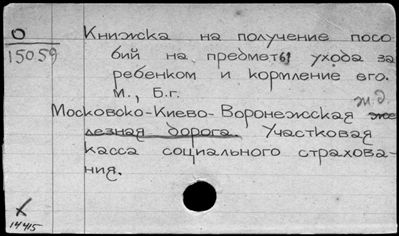 О
15059
Книжка на получение посо-
бий на предметы ухода за
ребенком и кормление его.
М., Б.г.
ж.д.
Московско-Киево-Воронежская же-
лезная дорога. Участковая
касса социального страхова-
ния.
X
14415